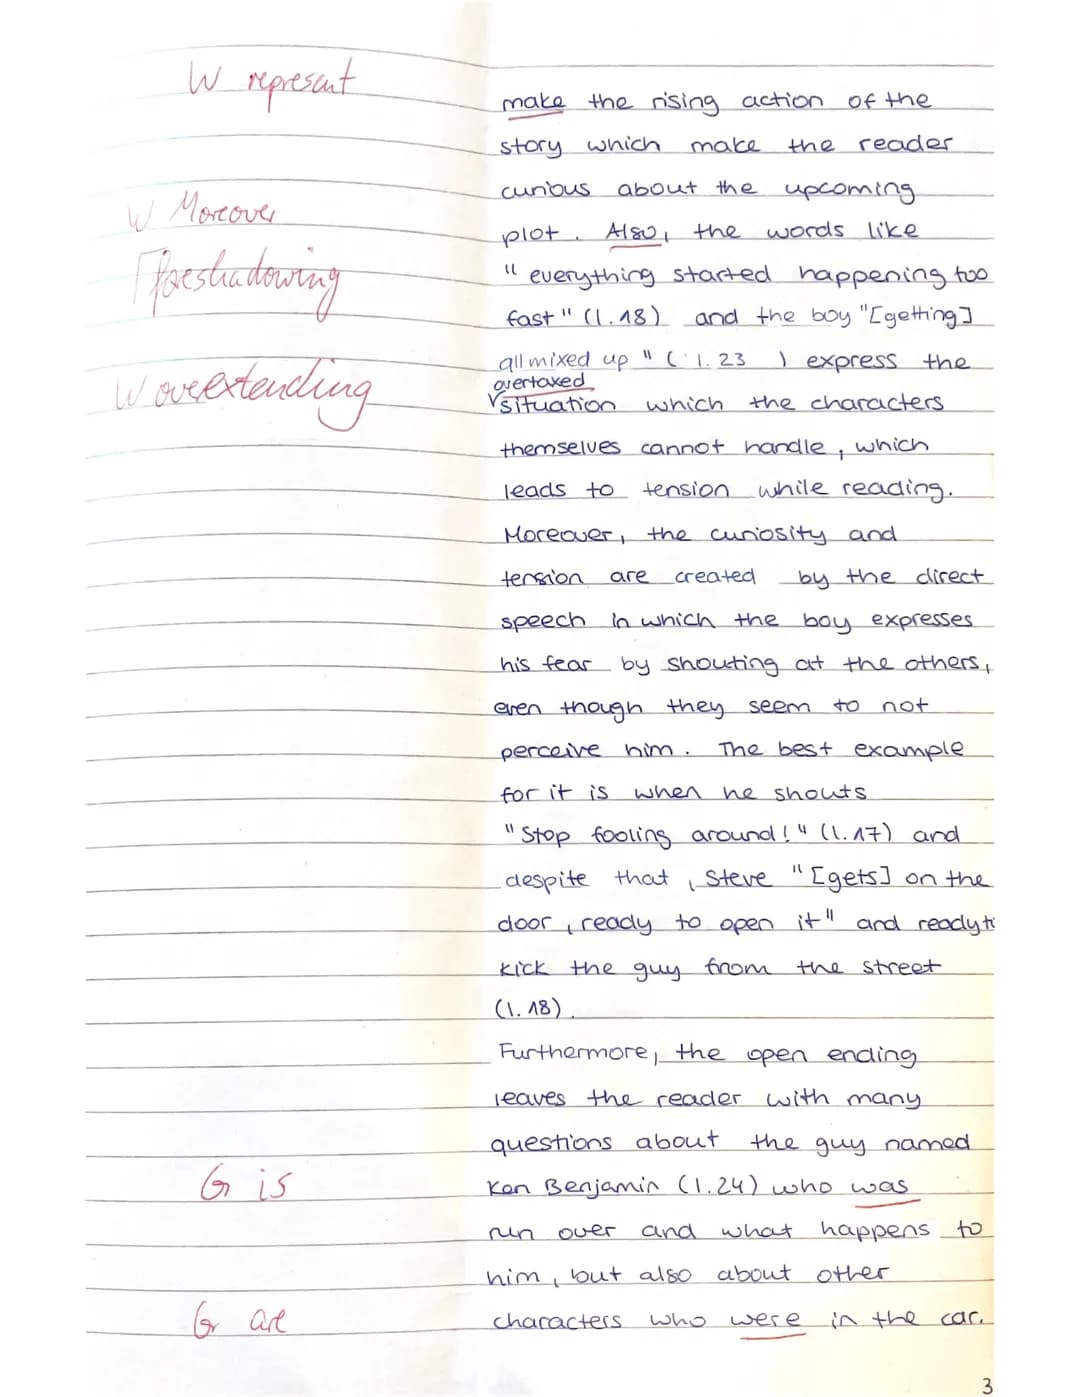 W represent
make the rising action of the
story which make the reader
curious about the upcoming
W Moreover
plot. Also, the words like
foreshadowing
"everything started happening too
fast" (l. 18) and the boy "[getting]
all mixed up" (l. 23) express the
W overextending
overtaxed
situation which the characters
themselves cannot handle, which
leads to tension while reading.
Moreover, the curiosity and
tension are created by the direct
speech in which the boy expresses
his fear by shouting at the others,
even though they seem to not
perceive him. The best example
for it is when he shouts
"Stop fooling around!" (l. 17) and
despite that, Steve "[gets] on the
door, ready to open it" and ready to
kick the guy from the street
(l. 18).
Furthermore, the open ending
leaves the reader with many
questions about the guy named
G is
Ken Benjamin (l. 24) who was
run over and what happens to
him, but also about other
Gr are
characters who were in the car.
3